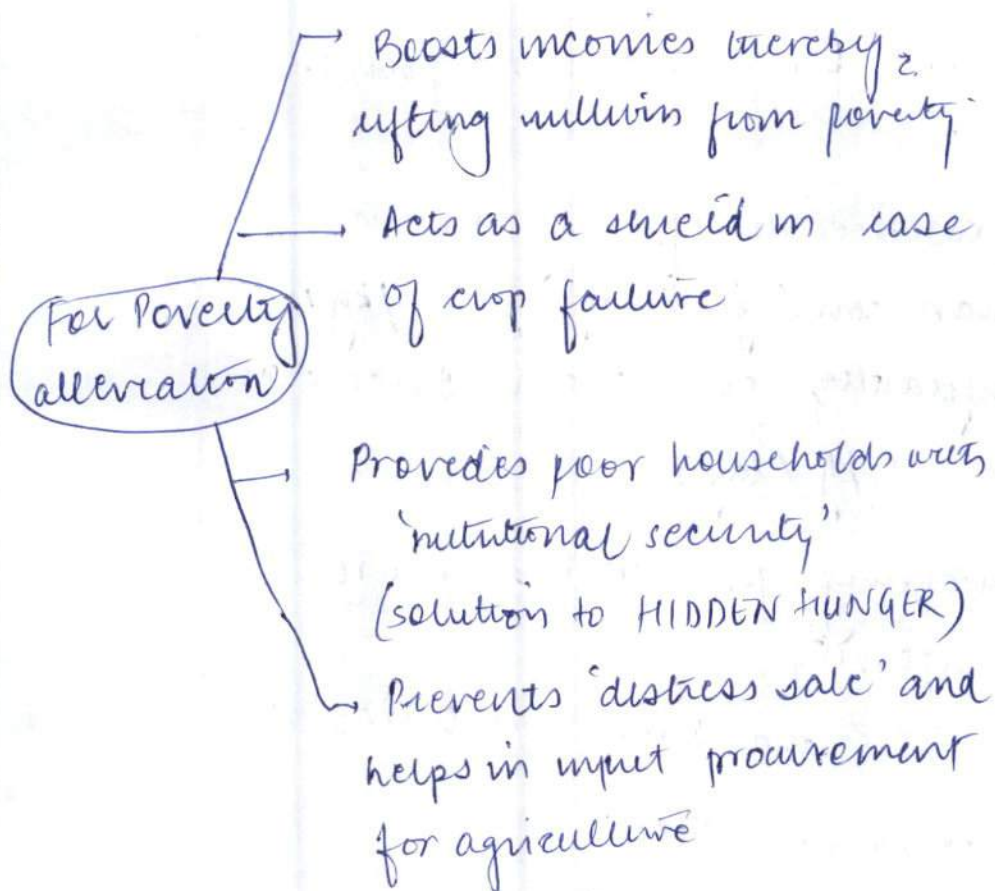 Boosts incomes thereby,
lifting millions from poverty
Acts as a shield in case
of crop failure
For Poverty
alleviation
Provides poor households with
'nutritional security'
(solution to HIDDEN HUNGER)
Prevents 'distress sale' and
helps in input procurement
for agriculture